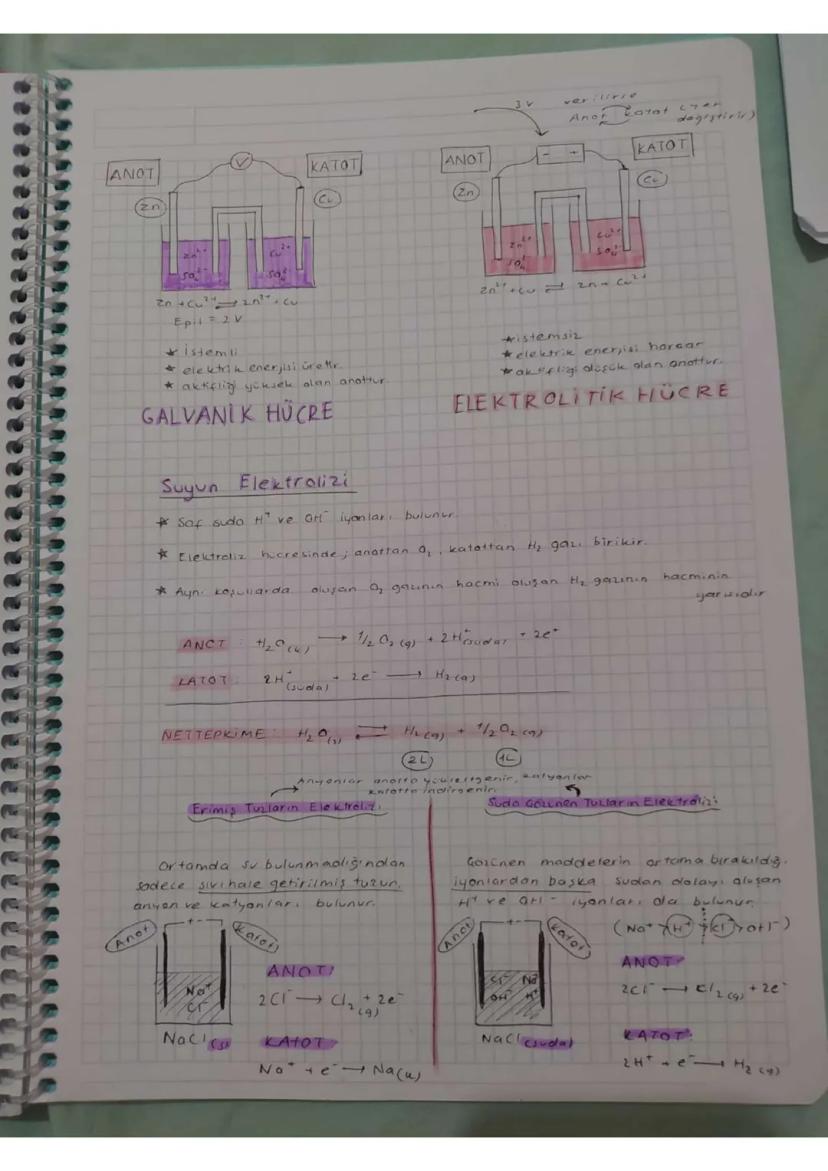 3V verilirse
Anot katot (yer değiştirir)
ANOT
KATOT
ANOT
KATOT
V
- +
Zn
Cu
Zn
Cu
Zn²⁺
SO₄²⁻
Cu²⁺
SO₄²⁻
Zn²⁺
SO₄²⁻
Cu²⁺
SO₄²⁻
Zn + Cu²⁺ ⇌ Zn²⁺ + Cu
Epil = 2V
Zn²⁺ + Cu ⇌ Zn + Cu²⁺
* istemli
* elektrik enerjisi üretir.
* aktifliği yüksek olan anottur.
GALVANİK HÜCRE
* istemsiz
* elektrik enerjisi harcar
* aktifliği düşük olan anottur.
ELEKTROLİTİK HÜCRE
Suyun Elektrolizi
* Saf suda H⁺ ve OH⁻ iyonları bulunur.
* Elektroliz hücresinde; anottan O₂, katottan H₂ gazı birikir.
* Aynı koşullarda oluşan O₂ gazının hacmi oluşan H₂ gazının hacminin
yarısıdır
ANOT : H₂O(s) → 1/2 O₂(g) + 2H⁺(suda) + 2e⁻
KATOT : 2H⁺(suda) + 2e⁻ → H₂(g)
NET TEPKİME : H₂O(s) ⇌ H₂(g) + 1/2 O₂(g)
2L
1L
Anyonlar anotta yükseltgenir, katyonlar
katotta indirgenir
Erimiş Tuzların Elektrolizi
Ortamda su bulunmadığından
sadece sıvı hale getirilmiş tuzun,
anyon ve katyonları bulunur.
Anot
+ -
Katot
Na⁺
Cl⁻
NaCl(s)
ANOT:
2Cl⁻ → Cl₂(g) + 2e⁻
KATOT
Na⁺ + e⁻ → Na(k)
Suda Çözünen Tuzların Elektrolizi
Çözünen maddelerin ortama bıraktığı
iyonlardan başka sudan dolayı oluşan
H⁺ ve OH⁻ iyonları da bulunur
(Na⁺ > H⁺ > Cl⁻ > OH⁻)
Anot
+ -
Katot
Cl⁻ Na⁺
OH⁻ H⁺
NaCl(suda)
ANOT:
2Cl⁻ → Cl₂(g) + 2e⁻
KATOT:
2H⁺ + e⁻ → H₂(g)